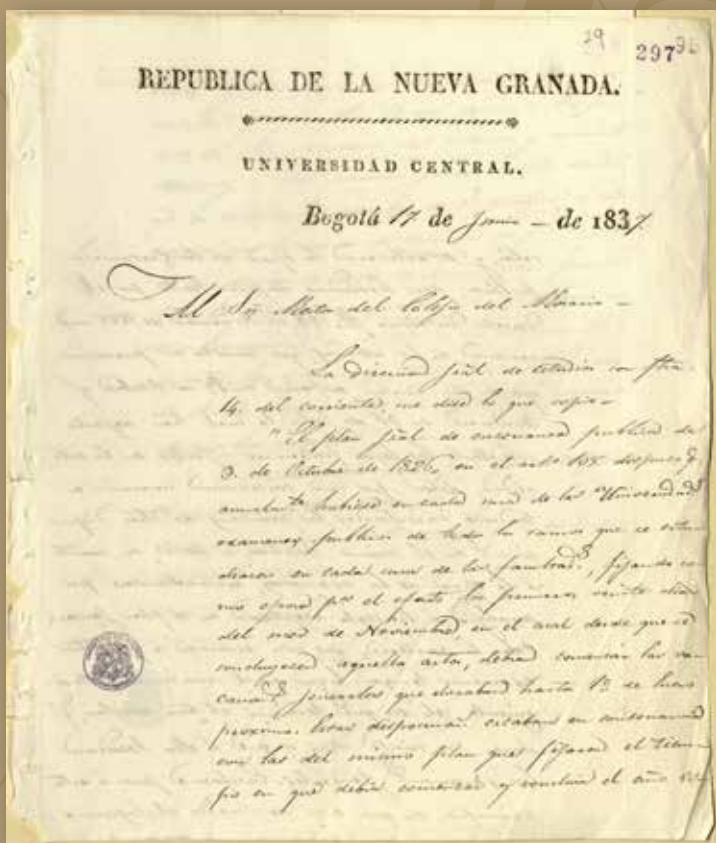 29 297 96
REPUBLICA DE LA NUEVA GRANADA.
UNIVERSIDAD CENTRAL.
Bogotá 17 de Junio - de 1837
Al Sr. Rector del Colejio del Rosario -
La direccion jral de estudios con fha.
14. del corriente, me dice lo que copio -
"El plan jral de enseñanza publica de
3. de Octubre de 1826, en el arto 198. dispuso q.
anualmte. hubiese en cada una de las Universidads.
examenes publicos de todos los ramos que se estu
diasen en cada una de las facultads., fijando co
mo epoca pa. el efecto los primeros veinte dias
del mes de Noviembre, en el cual desde que se
concluyesen aquellos actos, debian comenzar las va
caciones jenerales que duraban hasta 1º de Enero
proximo. Estas disposiciones estaban en consonancia
con las del mismo plan que fijaron el tiem
po en que debia comenzar y concluir el año